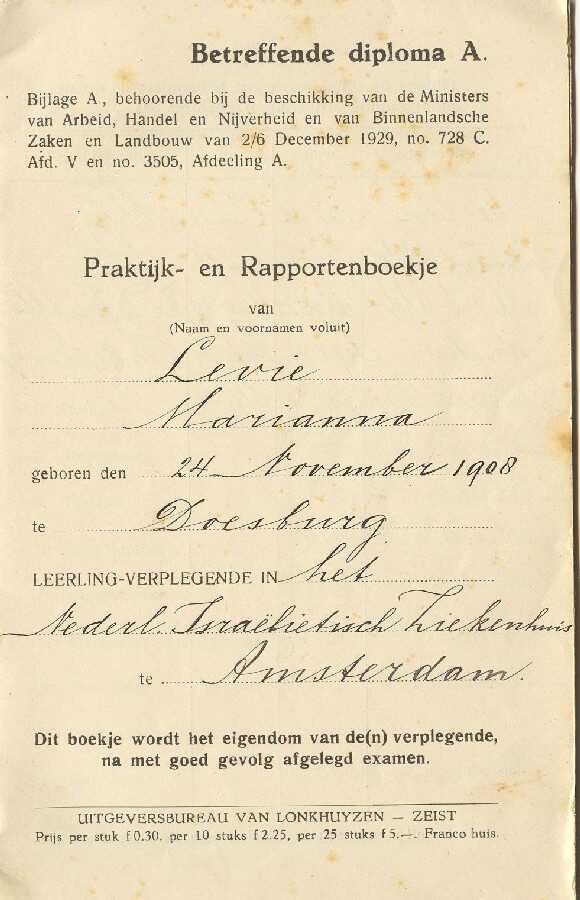 Betreffende diploma A.
Bijlage A, behoorende bij de beschikking van de Ministers
van Arbeid, Handel en Nijverheid en van Binnenlandsche
Zaken en Landbouw van 2/6 December 1929, no. 728 C.
Afd. V en no. 3505, Afdeeling A.
Praktijk- en Rapportenboekje
van
(Naam en voornamen voluit)
Levie
Marianna
geboren den 24 November 1908
te Doesburg
LEERLING-VERPLEGENDE IN het
Nederl. Israëlietisch Ziekenhuis
te Amsterdam.
Dit boekje wordt het eigendom van de(n) verplegende,
na met goed gevolg afgelegd examen.
UITGEVERSBUREAU VAN LONKHUYZEN — ZEIST
Prijs per stuk f 0.30, per 10 stuks f 2.25, per 25 stuks f 5.—. Franco huis.